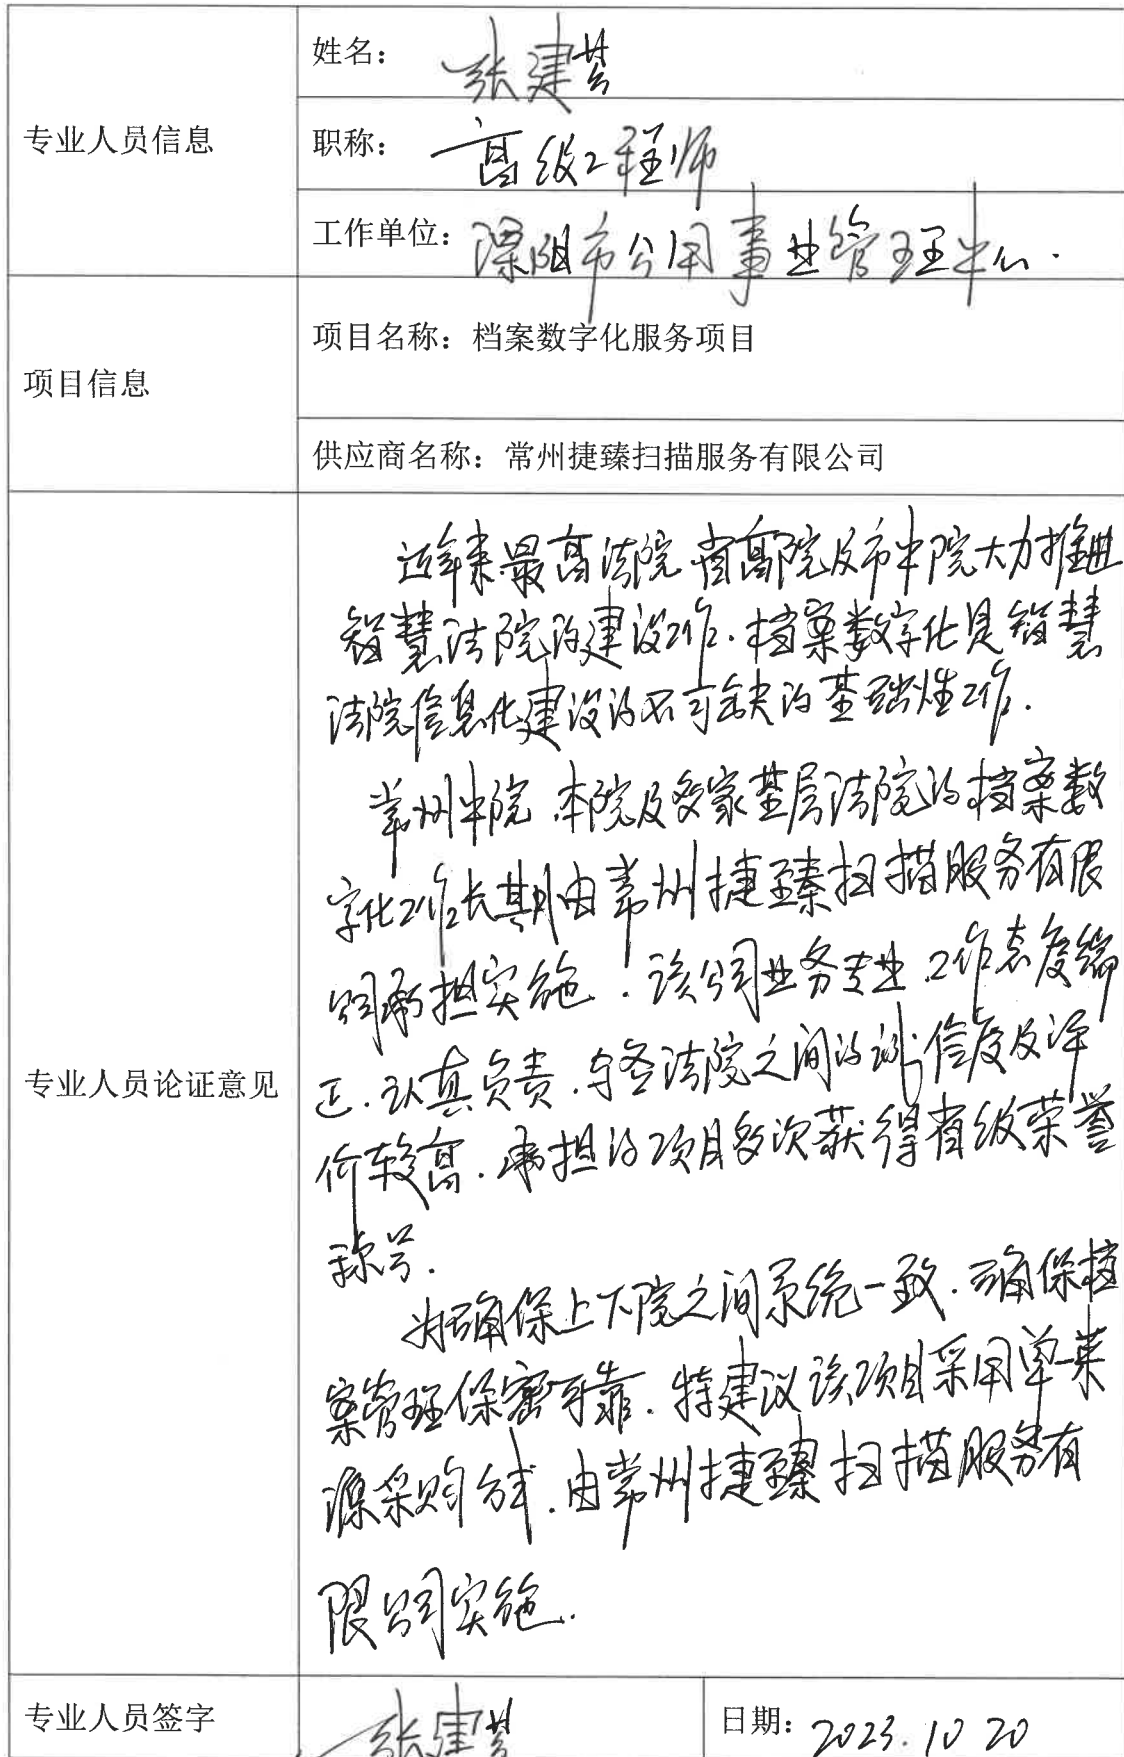 专业人员信息
姓名：张建芸
职称：高级工程师
工作单位：溧阳市公用事业管理中心.
项目信息
项目名称：档案数字化服务项目
供应商名称：常州捷臻扫描服务有限公司
专业人员论证意见
近年来最高法院 省高院及市中院大力推进
智慧法院的建设工作.档案数字化是智慧
法院信息化建设的不可缺的基础性工作.
常州中院.本院及多家基层法院的档案数
字化工作长期由常州捷臻扫描服务有限
公司承担实施.该公司业务专业.工作态度端
正.认真负责.与各法院之间的诚信度及评
价较高.承担的项目多次获得省级荣誉
称号.
为确保上下院之间系统一致.确保档
案管理保密可靠.特建议该项目采用单一来
源采购方式.由常州捷臻扫描服务有
限公司实施.
专业人员签字 张建芸 日期：2023.10 20